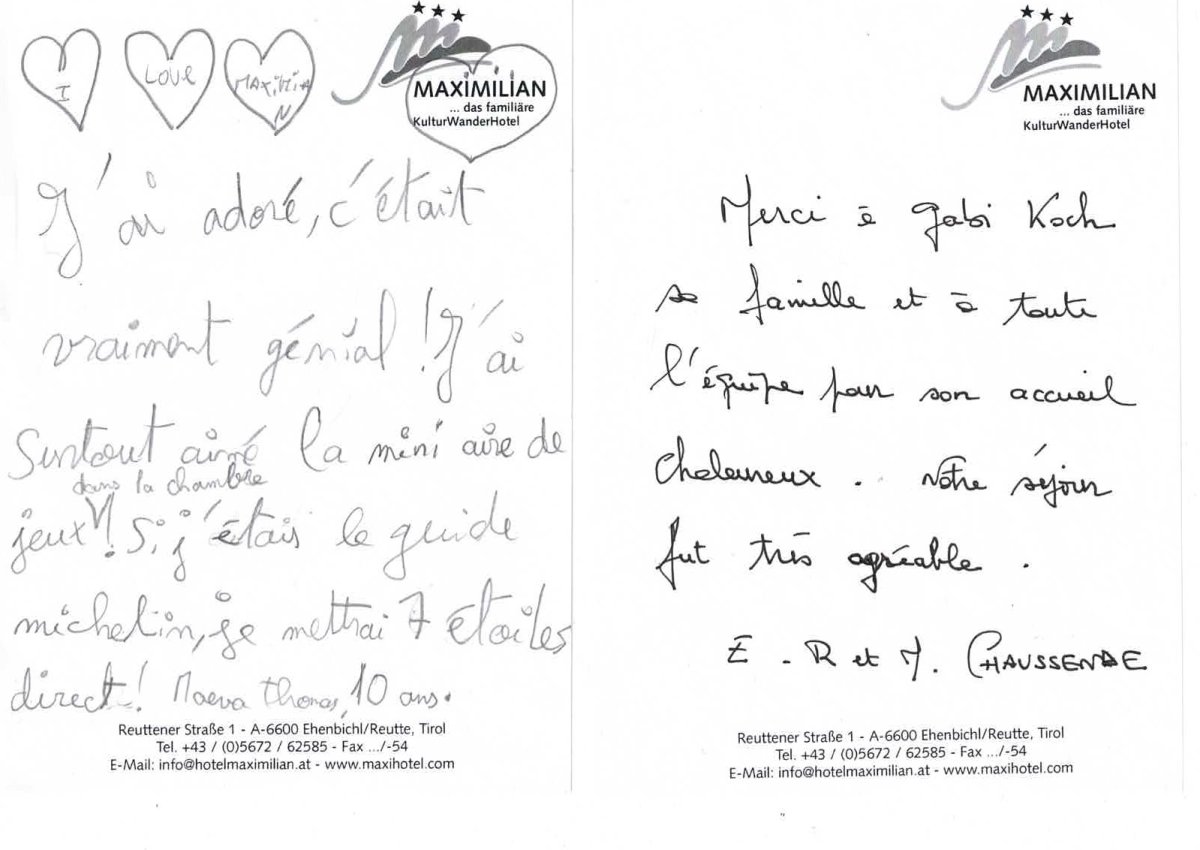 I
LOVE
MAXIMIA
N
MAXIMILIAN
... das familiäre
KulturWanderHotel
J'ai adoré, c'était
vraiment génial ! J'ai
Surtout aimé la mini aire de
dans la chambre
jeux ! Si j'étais le guide
michelin, je mettrai 7 étoiles
direct ! Maeva Thomas, 10 ans.
Reuttener Straße 1 - A-6600 Ehenbichl/Reutte, Tirol
Tel. +43 / (0)5672 / 62585 - Fax .../-54
E-Mail: info@hotelmaximilian.at - www.maxihotel.com
MAXIMILIAN
... das familiäre
KulturWanderHotel
Merci à Gabi Koch
sa famille et à toute
l'équipe pour son accueil
chaleureux . Notre séjour
fut très agréable .
E . R et M. CHAUSSENDE
Reuttener Straße 1 - A-6600 Ehenbichl/Reutte, Tirol
Tel. +43 / (0)5672 / 62585 - Fax .../-54
E-Mail: info@hotelmaximilian.at - www.maxihotel.com